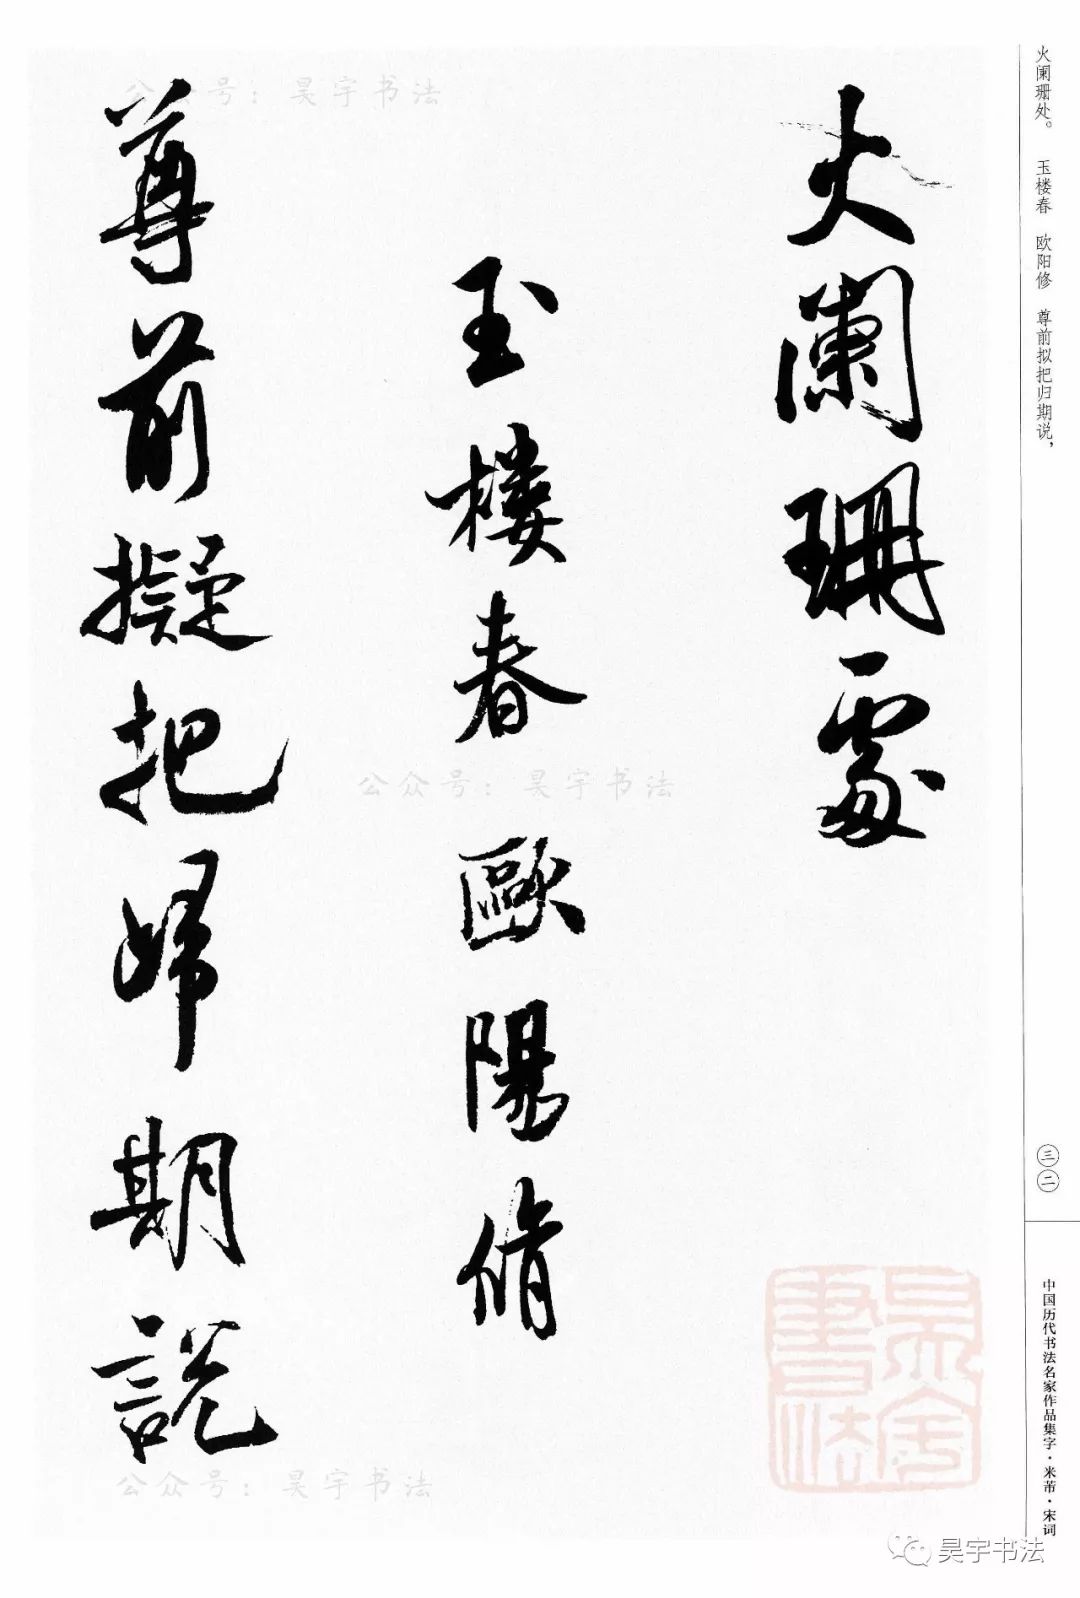 火阑珊处。　玉楼春　欧阳修　尊前拟把归期说，
三二
中国历代书法名家作品集字·米芾·宋词
火闌珊處
玉樓春歐陽脩
尊前擬把歸期說
公众号：昊宇书法
公众号：昊宇书法
公众号：昊宇书法
昊宇書法
昊宇书法